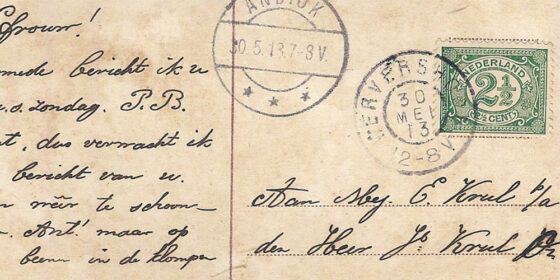 Vrouw!
mede bericht ik u
a.s. zondag. P.B.
dus verwacht ik
bericht van u.
mêêr te schoon-
Ant! maar op
been in de klompen
ANDIJK
30.5.13.7-8V.
* * *
WERVERSH
30
MEI
13
12-8V
NEDERLAND
2½
2½ CENT
Aan Mej. E. Krul p/a
den Heer Jb Krul